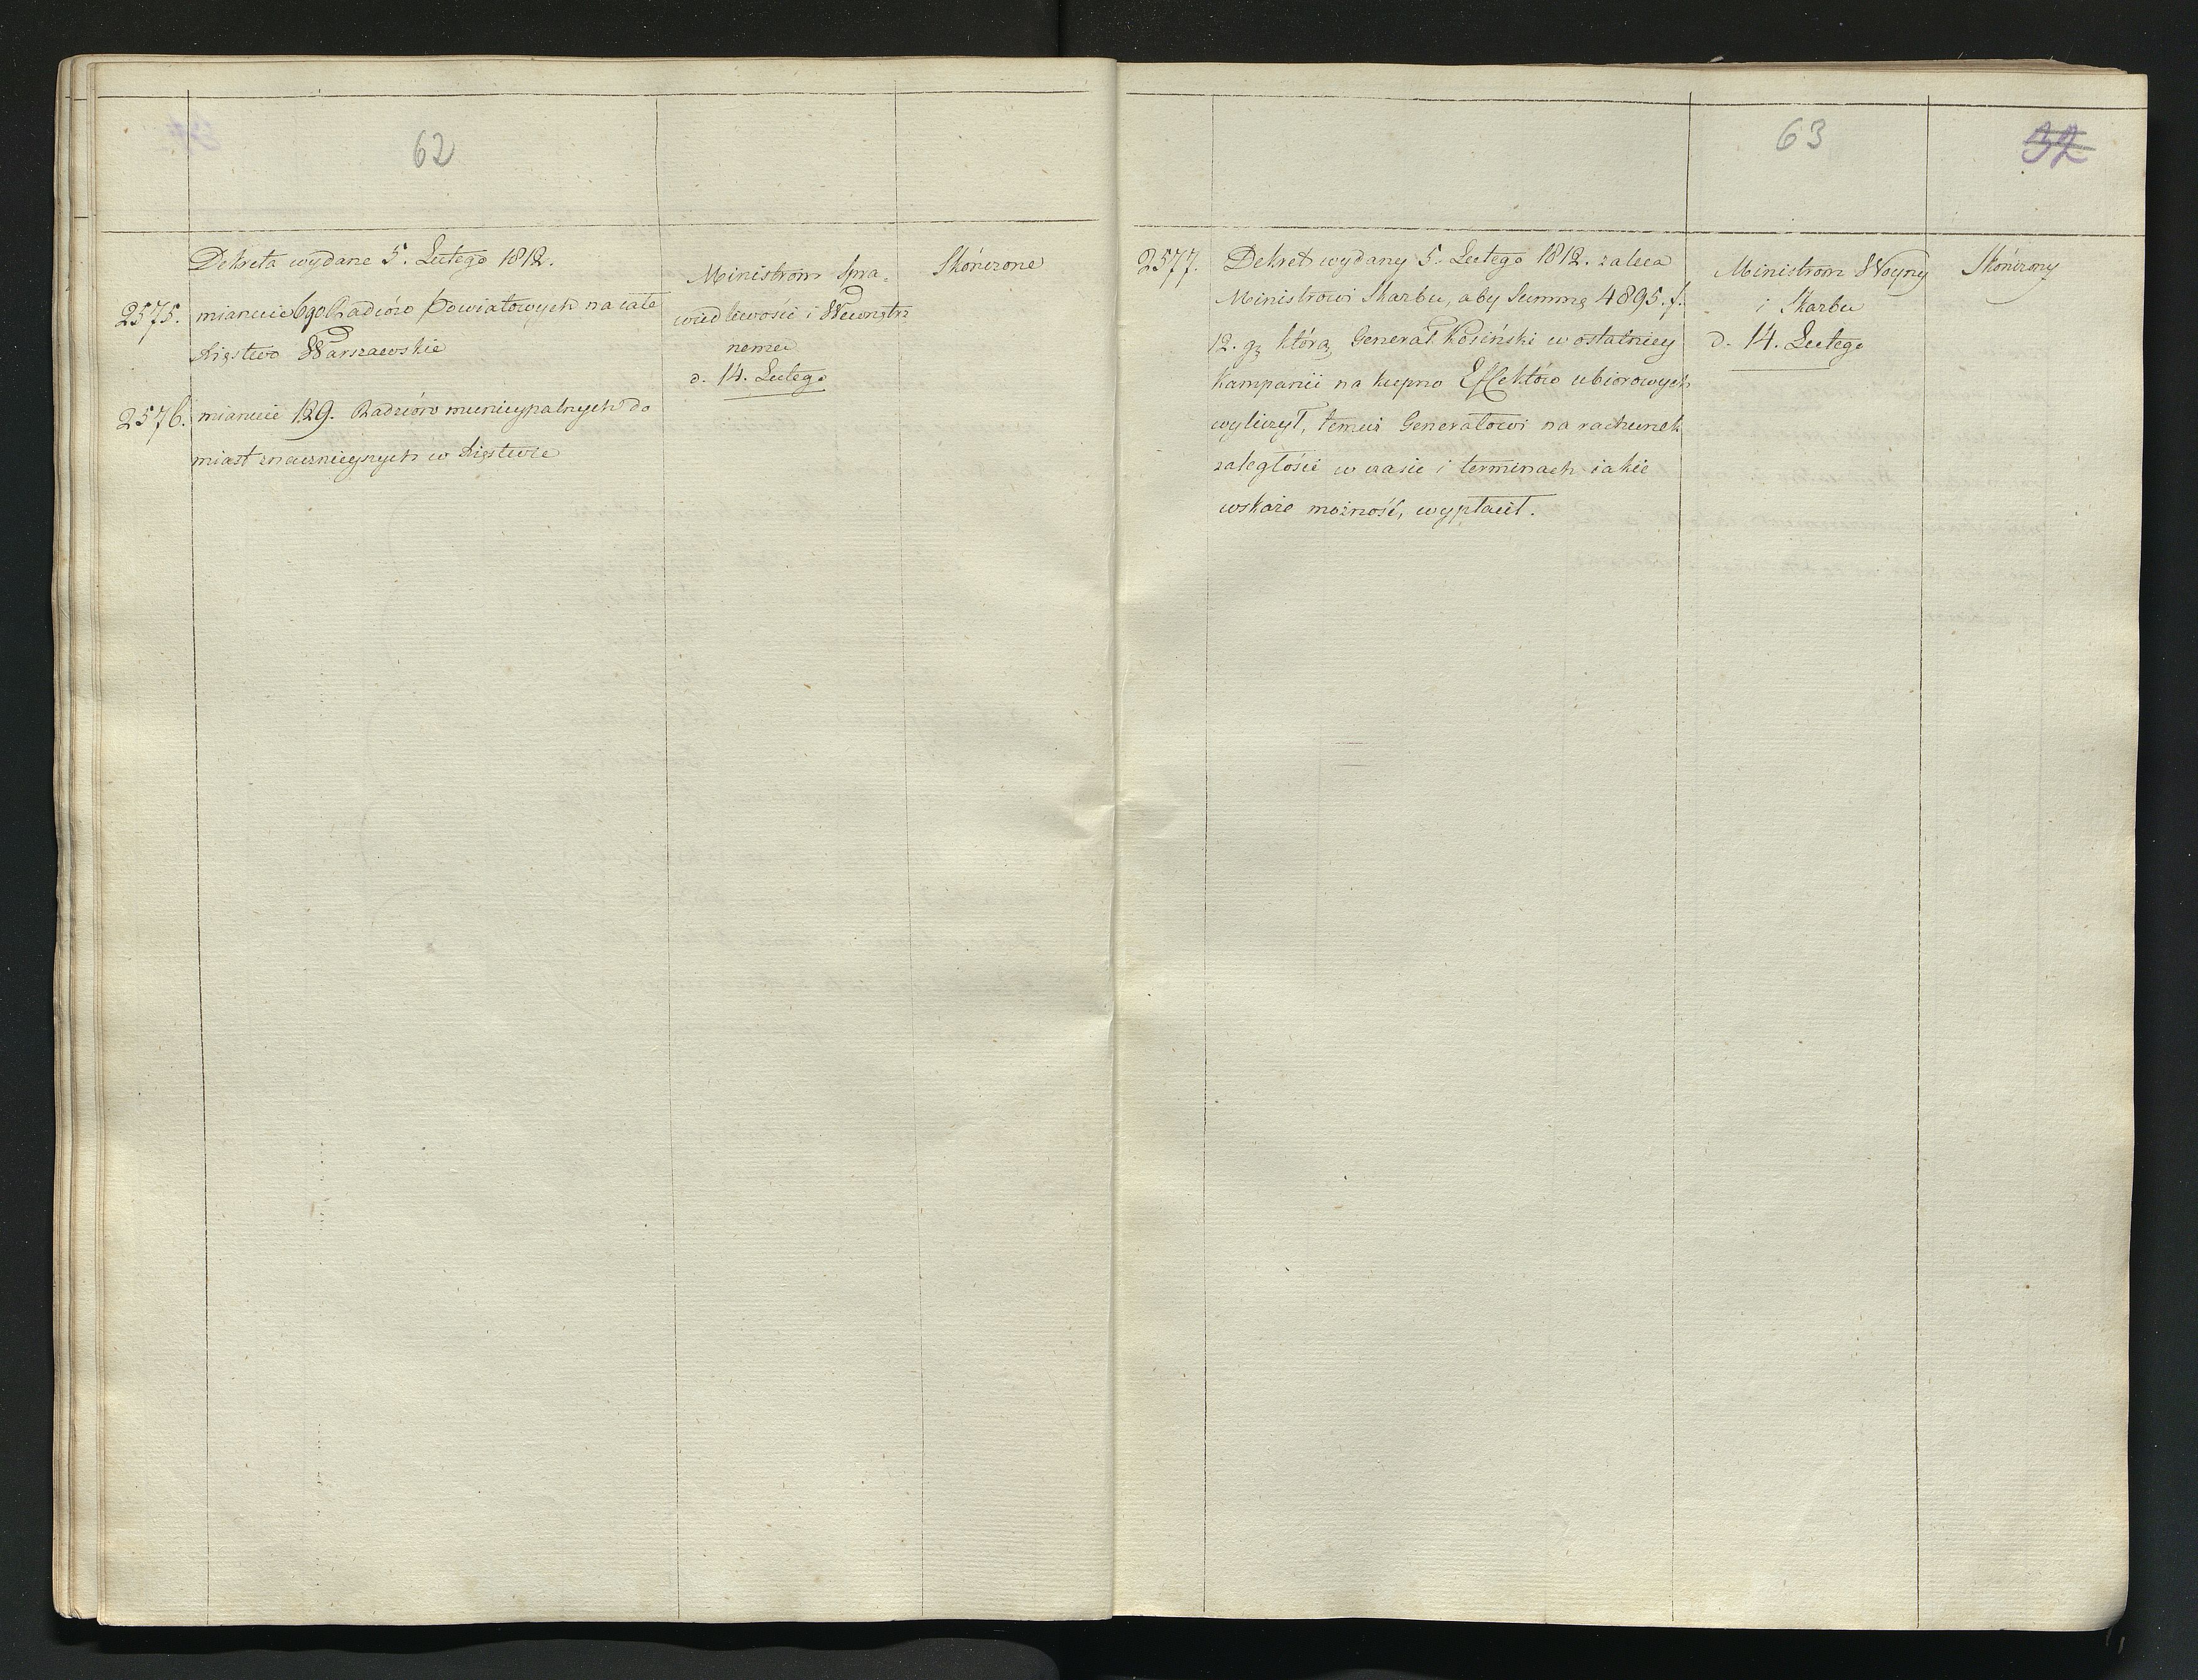 62
Dekreta wydane 5. Lutego 1812.
2575. mianuie 690 Radców Powiatowych na całe
Xięstwo Warszawskie
2576. mianuie 129. Radców municypalnych do
miast znacznieyszych w Xięstwie
Ministrom Spra-
wiedliwości i Wewnętrz-
nemu
d. 14. Lutego
Skończone
63
32
2577. Dekret wydany 5. Lutego 1812. zaleca
Ministrowi Skarbu, aby Summę 4895. f.
12. g. którą Generał Kosiński w ostatniey
Kampanii na kupno Effektów ubiorowych
wyliczył, temuż Generałowi na rachunek
zaległości w czasie i terminach iakie
wskaże możność, wypłacił.
Ministrom Woyny
i Skarbu
d. 14. Lutego
Skończony